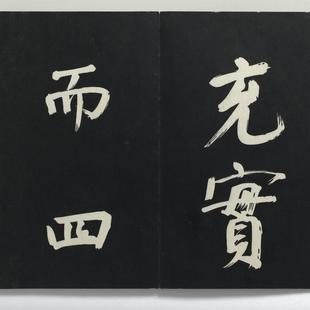 充實
而四